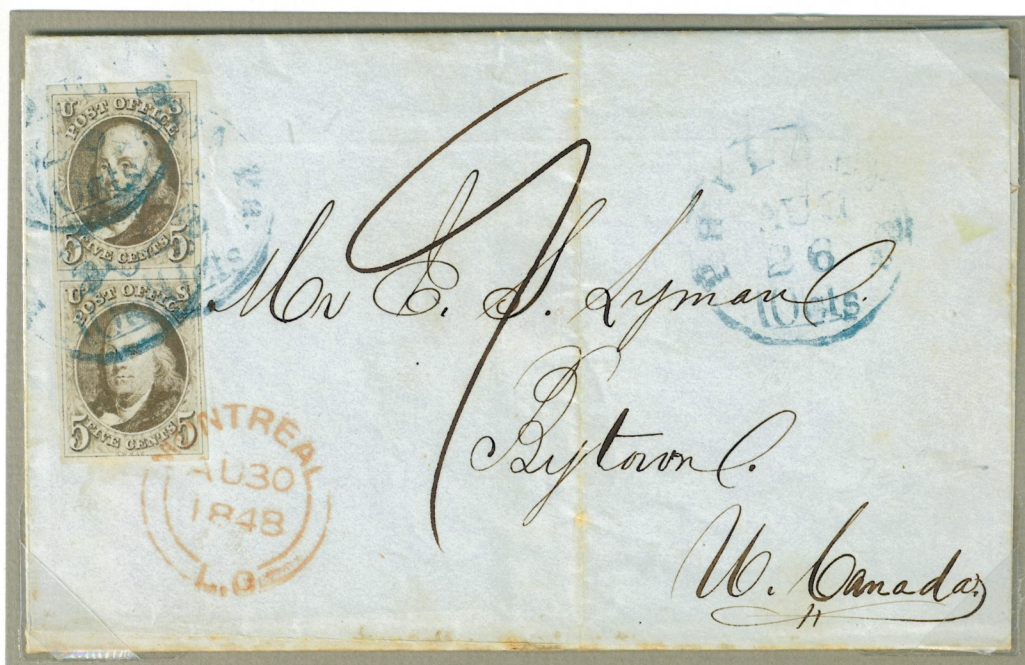 U S
POST OFFICE
5 5
FIVE CENTS
U S
POST OFFICE
5 5
FIVE CENTS
AUG
26
10cts
Mr E. S. Lyman
Bytown
U. Canada
MONTREAL
AU30
1848
L.C
9